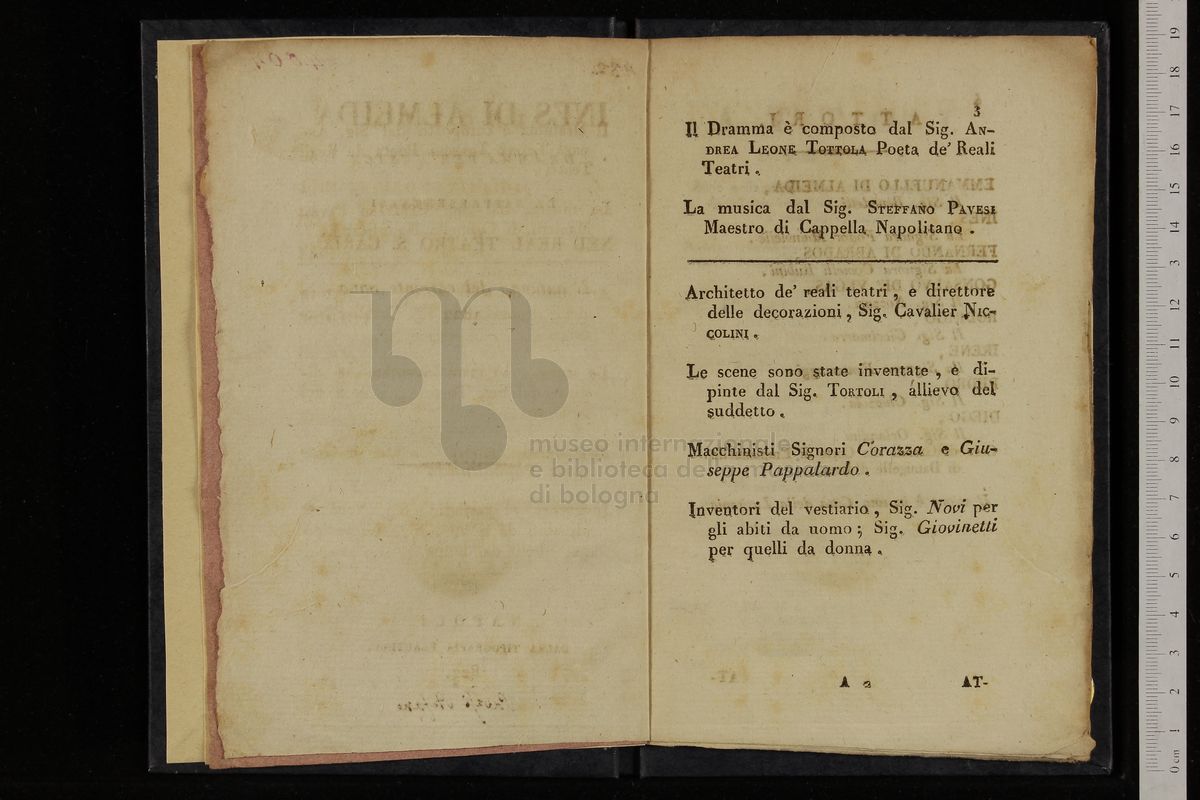 3
Il Dramma è composto dal Sig. AN-
DREA LEONE TOTTOLA Poeta de' Reali
Teatri.
La musica dal Sig. STEFFANO PAVESI
Maestro di Cappella Napolitano.
Architetto de' reali teatri, e direttore
delle decorazioni, Sig. Cavalier NIC-
COLINI.
Le scene sono state inventate, e di-
pinte dal Sig. TORTOLI, allievo del
suddetto.
Macchinisti Signori Corazza e Giu-
seppe Pappalardo.
Inventori del vestiario, Sig. Novi per
gli abiti da uomo; Sig. Giovinetti
per quelli da donna.
A 2 AT-
museo internazionale
e biblioteca de
di bologna
0 cm 1 2 3 4 5 6 7 8 9 10 11 12 13 14 15 16 17 18 19